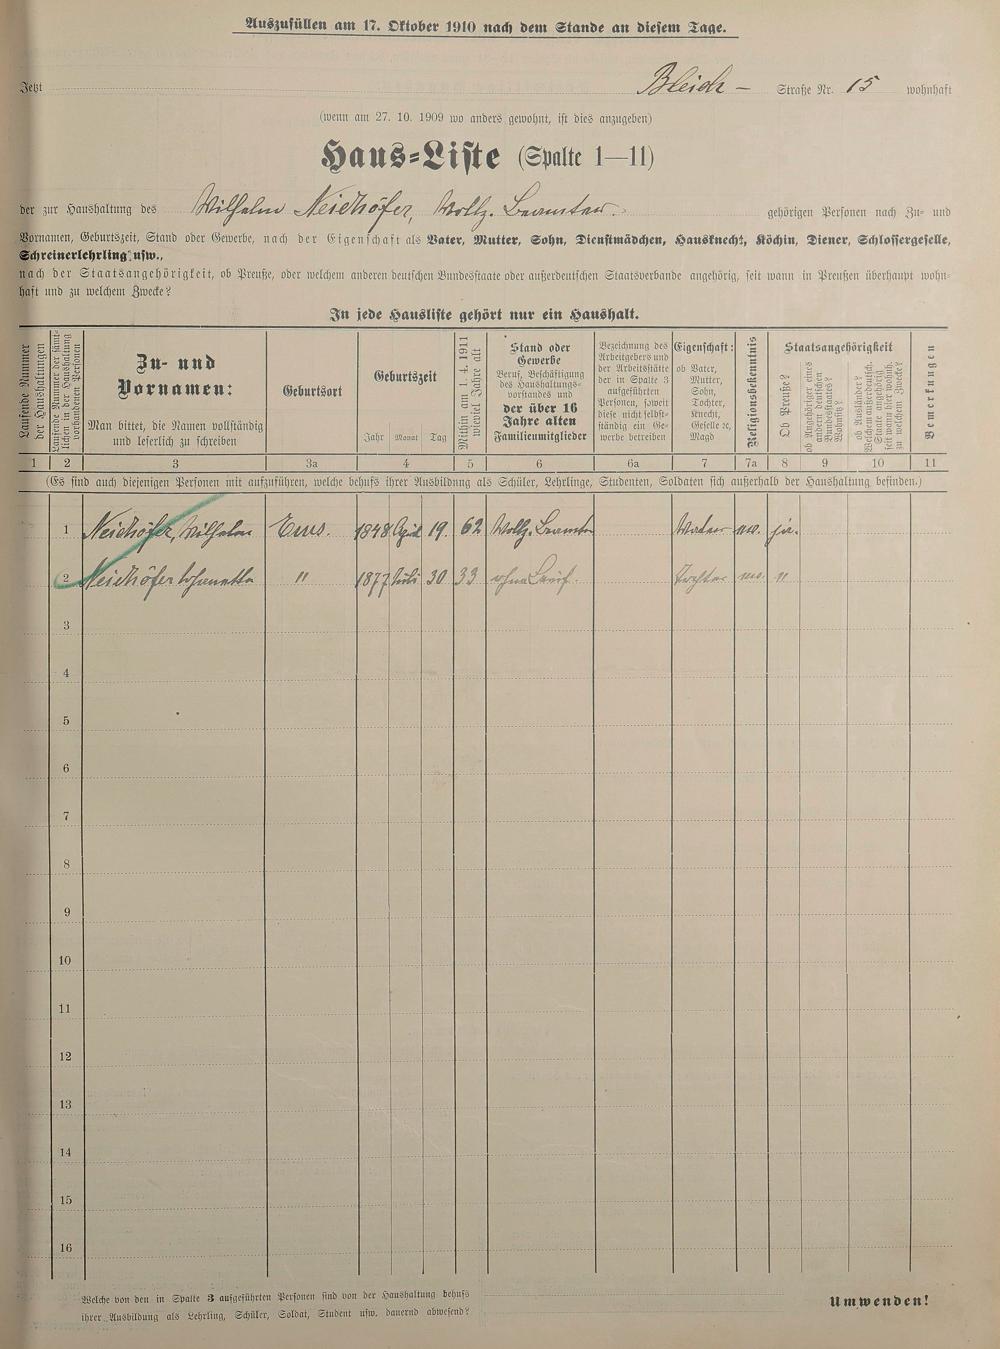 Auszufüllen am 17. Oktober 1910 nach dem Stande an diesem Tage.
Jetzt Bleich – Straße Nr. 15 wohnhaft
(wenn am 27. 10. 1909 wo anders gewohnt, ist dies anzugeben)
Haus-Liste (Spalte 1—11)
der zur Haushaltung des Wilhelm Neidhöfer, Vollz. Beamter. gehörigen Personen nach Zu- und
Vornamen, Geburtszeit, Stand oder Gewerbe, nach der Eigenschaft als Vater, Mutter, Sohn, Dienstmädchen, Hausknecht, Köchin, Diener, Schlossergeselle,
Schreinerlehrling usw.,
nach der Staatsangehörigkeit, ob Preuße, oder welchem anderen deutschen Bundesstaate oder außerdeutschen Staatsverbande angehörig, seit wann in Preußen überhaupt wohn-
haft und zu welchem Zwecke?
In jede Hausliste gehört nur ein Haushalt.
Laufende Nummer
der Haushaltungen
Laufende Nummer der sämt-
lichen in der Haushaltung
vorhandenen Personen
Zu- und
Vornamen:
Man bittet, die Namen vollständig
und leserlich zu schreiben
Geburtsort
Geburtszeit
Jahr Monat Tag
Mithin am 1. 4. 1911
wieviel Jahre alt
Stand oder
Gewerbe
Beruf, Beschäftigung
des Haushaltungs-
vorstandes und
der über 16
Jahre alten
Familienmitglieder
Bezeichnung des
Arbeitgebers und
der Arbeitsstätte
der in Spalte 3
aufgeführten
Personen, soweit
diese nicht selbst-
ständig ein Ge-
werbe betreiben
Eigenschaft:
ob Vater,
Mutter,
Sohn,
Tochter,
Knecht,
Geselle ec,
Magd
Religionsbekenntnis
Staatsangehörigkeit
Ob Preuße?
ob Angehöriger eines
andern deutschen
Bundesstaates?
Woher?
ob Ausländer?
Welchem außerdeutsch.
Staate angehörig,
seit wann hier wohnh.
zu welchem Zwecke?
Bemerkungen
1 2 3 3a 4 5 6 6a 7 7a 8 9 10 11
(Es sind auch diejenigen Personen mit aufzuführen, welche behufs ihrer Ausbildung als Schüler, Lehrlinge, Studenten, Soldaten sich außerhalb der Haushaltung befinden.)
1 Neidhöfer, Wilhelm Ems. 1848 April 19. 62 Vollz. Beamter Vater ev. ja.
2 Neidhöfer Johanette " 1877 Juli 30 33 ohne Beruf. Tochter ev. "
3
4
5
6
7
8
9
10
11
12
13
14
15
16
Welche von den in Spalte 3 aufgeführten Personen sind von der Haushaltung behufs
ihrer Ausbildung als Lehrling, Schüler, Soldat, Student usw. dauernd abwesend?
Umwenden!